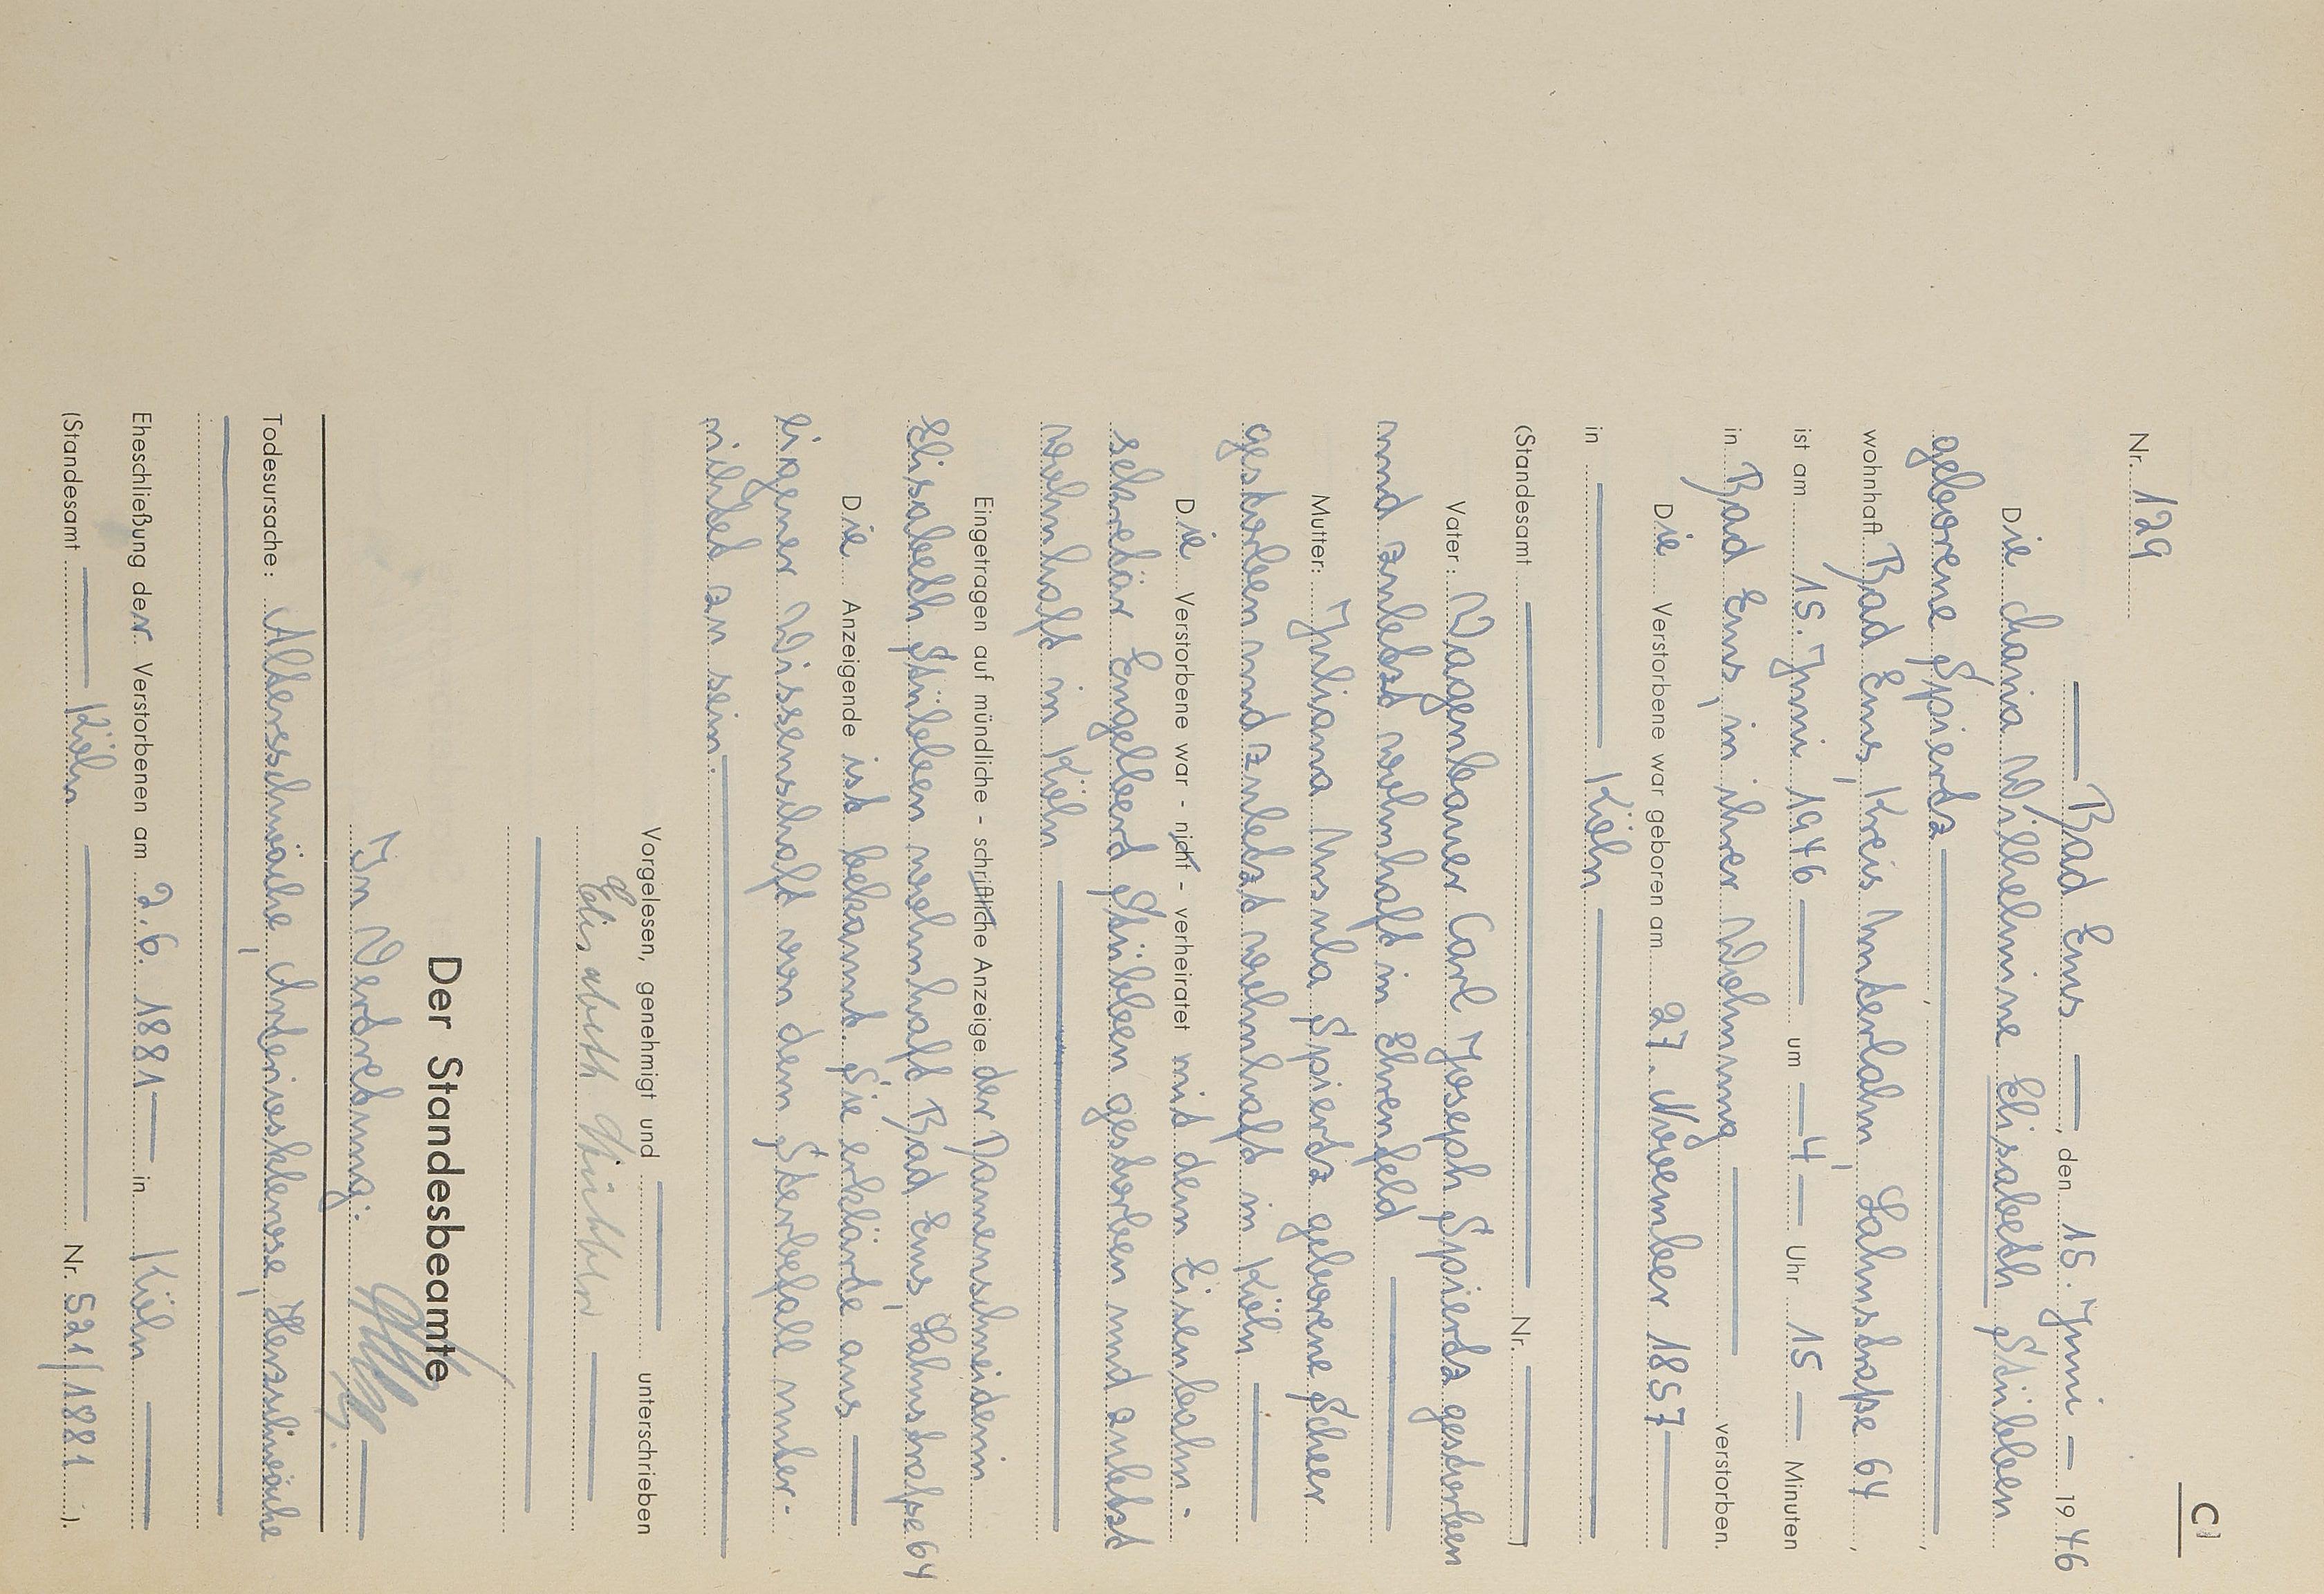 C
Nr. 129
Bad Ems, den 15. Juni 1946
Die Maria Wilhelmine Elisabeth Stübben
geborene Spiertz,
wohnhaft Bad Ems, Kreis Unterlahn, Lahnstraße 64,
ist am 15. Juni 1946 um 4 Uhr 15 Minuten
in Bad Ems, in ihrer Wohnung verstorben.
Die Verstorbene war geboren am 27. November 1857
in Köln
(Standesamt Nr. )
Vater: Wagenbauer Carl Joseph Spiertz gestorben
und zuletzt wohnhaft in Ehrenfeld
Mutter: Juliana Ursula Spiertz geborene Scheer
gestorben und zuletzt wohnhaft in Köln
Die Verstorbene war - nicht - verheiratet mit dem Eisenbahn-
sekretär Engelbert Stübben gestorben und zuletzt
wohnhaft in Köln
Eingetragen auf mündliche - schriftliche Anzeige der Damenschneiderin
Elisabeth Stübben wohnhaft Bad Ems, Lahnstraße 64
Die Anzeigende ist bekannt. Sie erklärte aus
eigener Wissenschaft von dem Sterbefall unter-
richtet zu sein.
Vorgelesen, genehmigt und unterschrieben
Elisabeth Stübben
Der Standesbeamte
In Vertretung:
Todesursache: Altersschwäche, Arteriosklerose, Herzschwäche
Eheschließung der Verstorbenen am 2. 6. 1881 in Köln
(Standesamt Köln Nr. 521/1881).